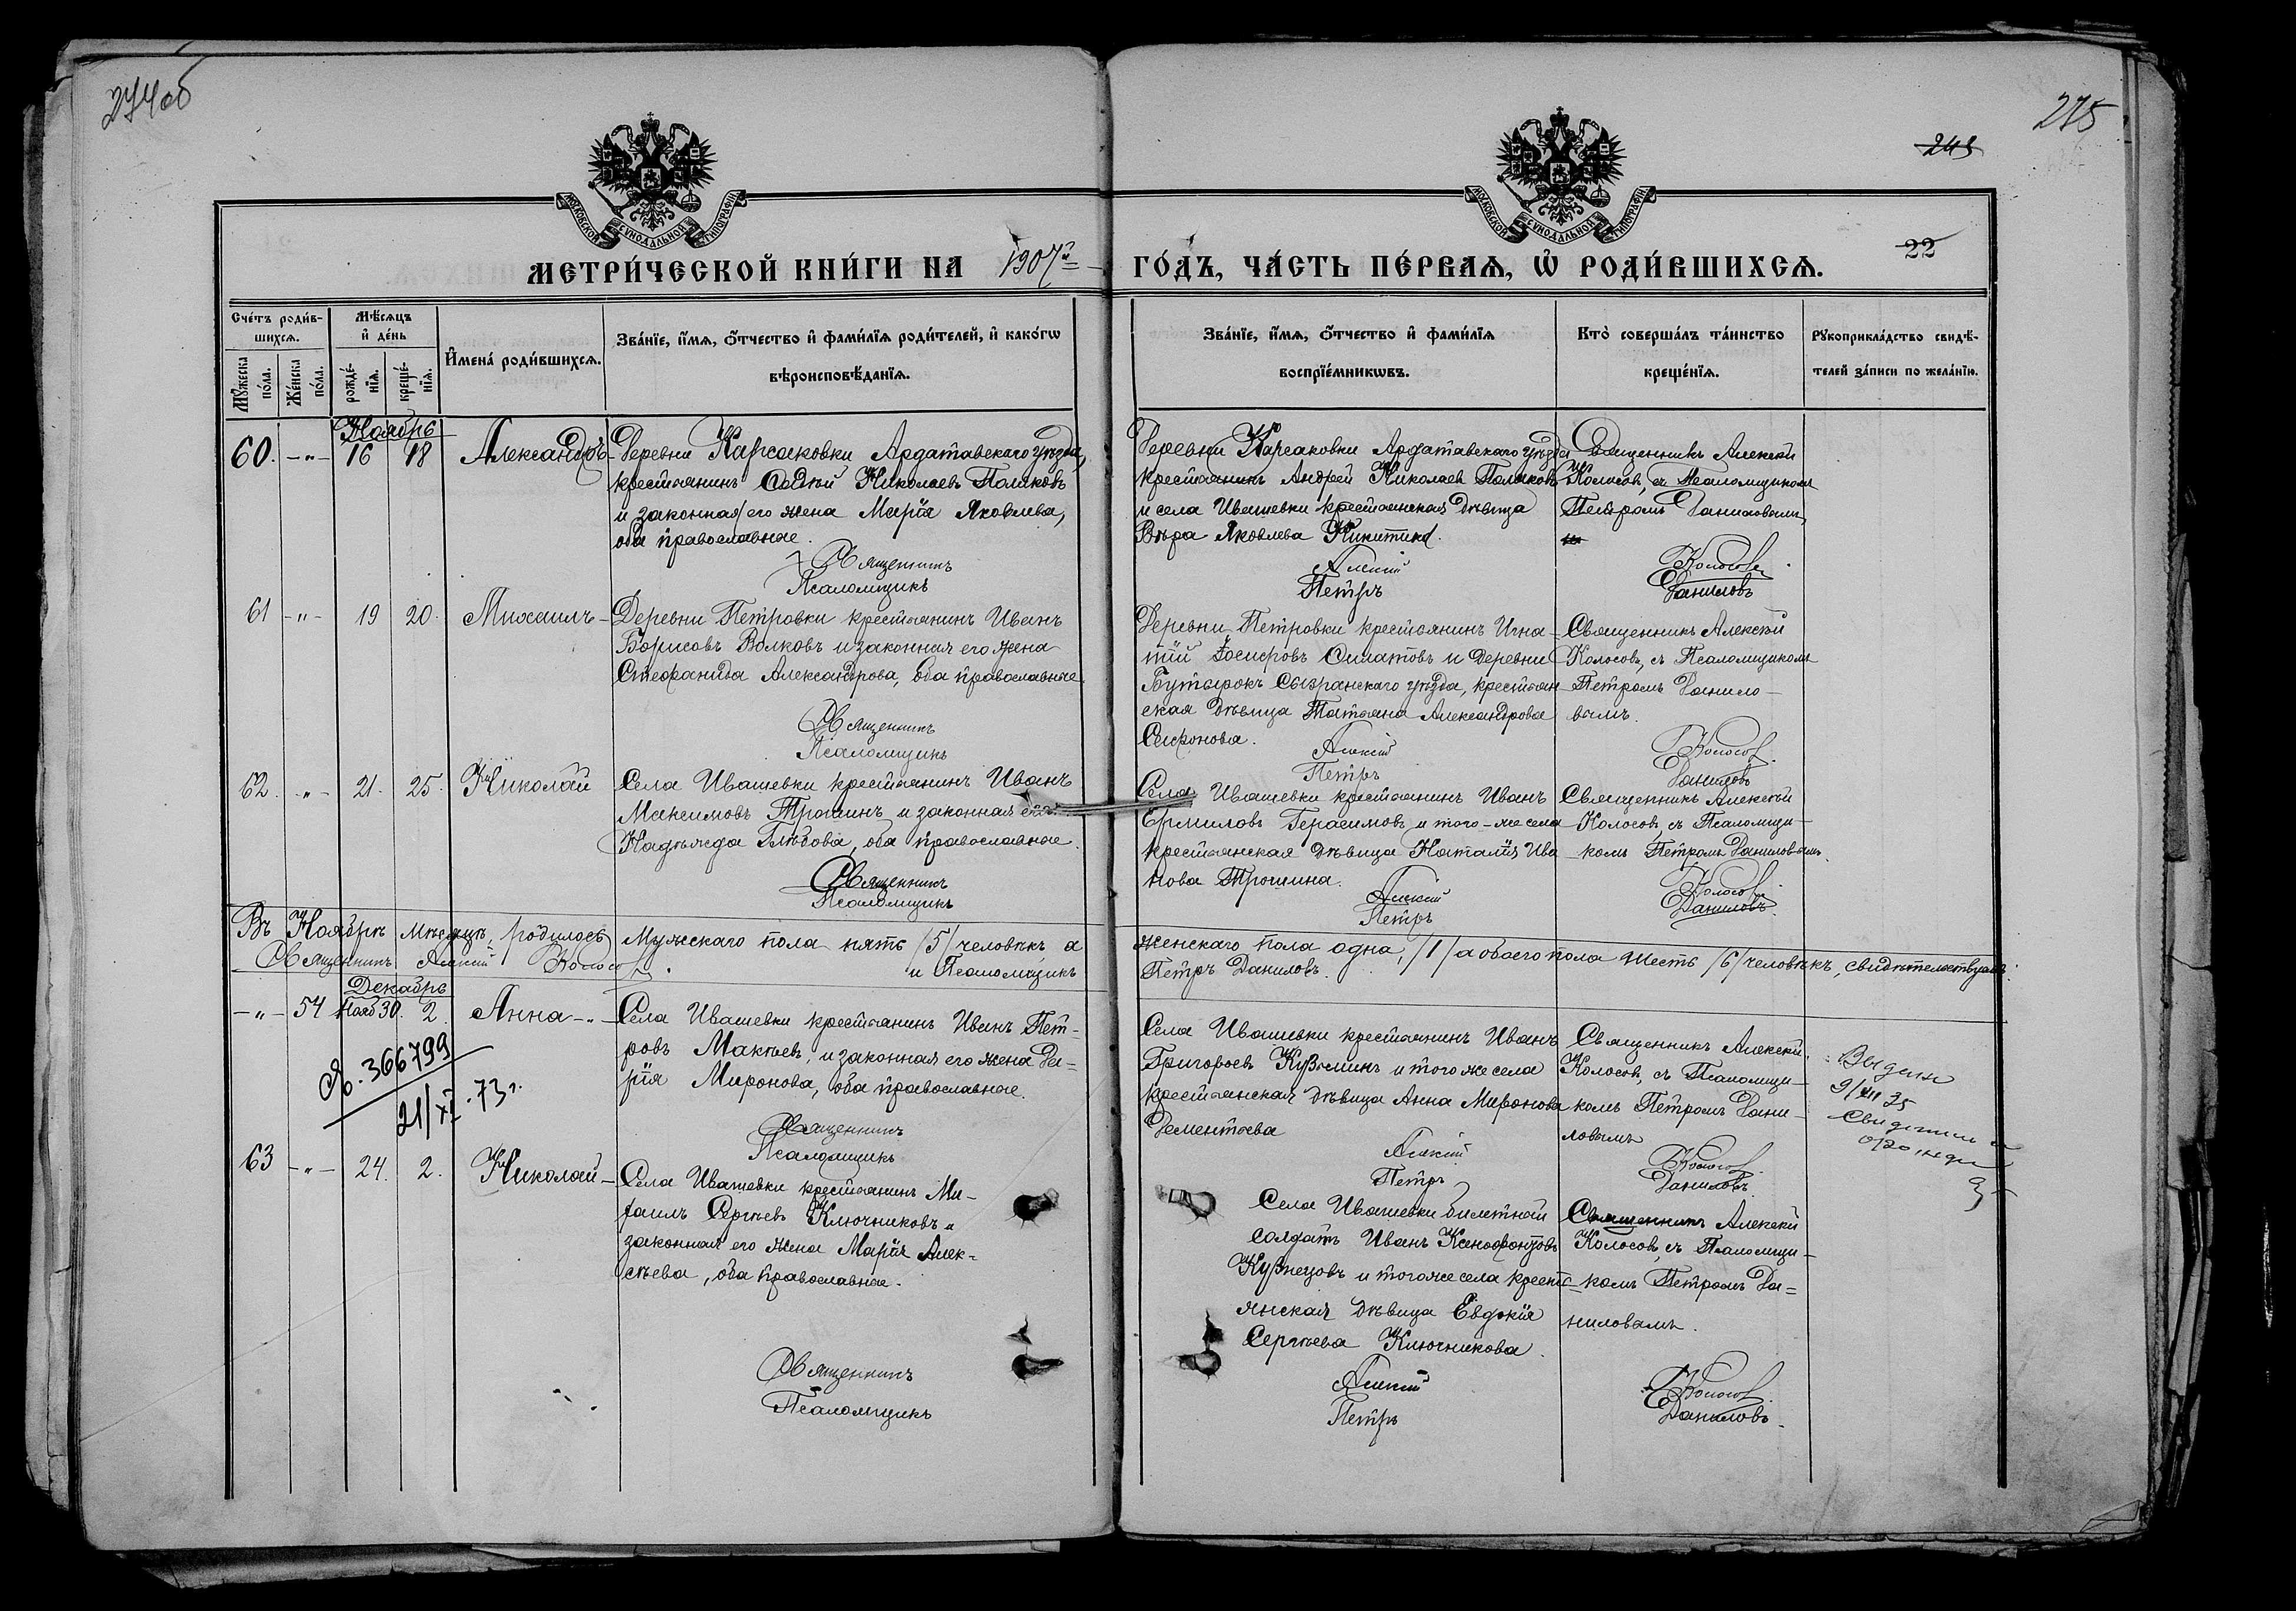 274об
275
245
22
МОСКОВСКОЙ СѴНОДАЛЬНОЙ ТИПОГРАФІИ
МОСКОВСКОЙ СѴНОДАЛЬНОЙ ТИПОГРАФІИ
МЕТРИ́ЧЕСКОЙ КНИ́ГИ НА 1907й ГО́ДЪ, ЧА́СТЬ ПЕ́РВАѦ, Ѽ РОДИ́ВШИХСѦ.
Сче́тъ роди́вшихсѧ.
Мꙋ́жеска по́ла.
Же́нска по́ла.
Мѣ́сѧцъ и҆ де́нь
рожде́нїѧ.
креще́нїѧ.
И҆мена̀ роди́вшихсѧ.
Зва́нїе, и҆́мѧ, ѻ҆́тчество и҆ фами́лїѧ роди́телей, и҆ како́гѡ
вѣроисповѣ́данїѧ.
Зва́нїе, и҆́мѧ, ѻ҆́тчество и҆ фами́лїѧ
воспрїе́мникѡвъ.
Кто̀ соверша́лъ та́инство
креще́нїѧ.
Рꙋкоприкла́дство свидѣ́-
телей за́писи по жела́нїю.
Ноябрь
60. -„- 16 18 Александръ
Деревни Карсаковки Ардатавскаго уѣзда,
крестьянинъ Николаевъ Поляковъ
и законная его жена Марія Яковлева,
оба православные.
Священникъ
Псаломщикъ
Деревни Карсаковки Ардатавскаго уѣзда
крестьянинъ Андрей Николаевъ Поляковъ
и села Ивашевки крестьянская дѣвица
Вѣра Яковлева Никитина.
Алексій
Петръ
Священникъ Алексѣй
Колосовъ, съ Псаломщикомъ
Петромъ Даниловымъ
Колосовъ
Даниловъ
61 -„- 19 20. Михаилъ
Деревни Петровки крестьянинъ Иванъ
Борисовъ Волковъ и законная его жена
Стефанида Александрова, оба православные
Священникъ
Псаломщикъ
Деревни Петровки крестьянинъ Игна-
тій и деревни
Бутырокъ Сызранскаго уѣзда, крестьян-
ская дѣвица Татьяна Александрова
Алексій
Петръ
Священникъ Алексѣй
Колосовъ, съ Псаломщикомъ
Петромъ Данило-
вымъ.
Колосовъ
Даниловъ
62. -„- 21. 25. Николай
Села Ивашевки крестьянинъ Иванъ
Максимовъ Трошинъ и законная его
Надежда Глѣбова, оба православные.
Священникъ
Псаломщикъ
Села Ивашевки крестьянинъ Иванъ
Ермиловъ Герасимовъ и того-же села
крестьянская дѣвица Наталія Ива
нова Трошина.
Алексій
Петръ
Священникъ Алексѣй
Колосовъ, съ Псаломщи-
комъ Петромъ Даниловымъ.
Колосовъ
Даниловъ
Въ Ноябрѣ мѣсяцѣ родилось мужскаго пола пять /5/ человѣкъ, а женскаго пола одна, /1/ а обоего пола шесть /6/ человѣкъ, свидѣтельствуемъ:
Священникъ Алексій Колосовъ. и Псаломщикъ Петръ Даниловъ.
Декабрь
-„- 54 Нояб 30. 2. Анна-„-
Села Ивашевки крестьянинъ Иванъ Пет-
ровъ Макѣевъ, и законная его жена Да-
рія Миронова, оба православные.
Священникъ
Псаломщикъ
Села Ивашевки крестьянинъ Иванъ
Григорьевъ Кузьминъ и того же села
крестьянская дѣвица Анна Миронова
Дементьева
Алексій
Петръ
Священникъ Алексѣй
Колосовъ, съ Псаломщи-
комъ Петромъ Дани-
ловымъ
Колосовъ
Даниловъ
Выдано
9/XII 35
Свидетель
о рожден
366799
21/XI.73г.
63 -„- 24. 2. Николай
Села Ивашевки крестьянинъ Ми-
хаилъ Сергѣевъ Ключниковъ и
законная его жена Марія Алек-
сѣева, оба православные.
Священникъ
Псаломщикъ
Села Ивашевки билетный
солдатъ Иванъ Ксенофонтовъ
Кузнецовъ и того же села кресть-
янская дѣвица Евдокія
Сергѣева Ключникова.
Алексій
Петръ
Священникъ Алексѣй
Колосовъ, съ Псаломщи-
комъ Петромъ Да-
ниловымъ.
Колосовъ
Даниловъ